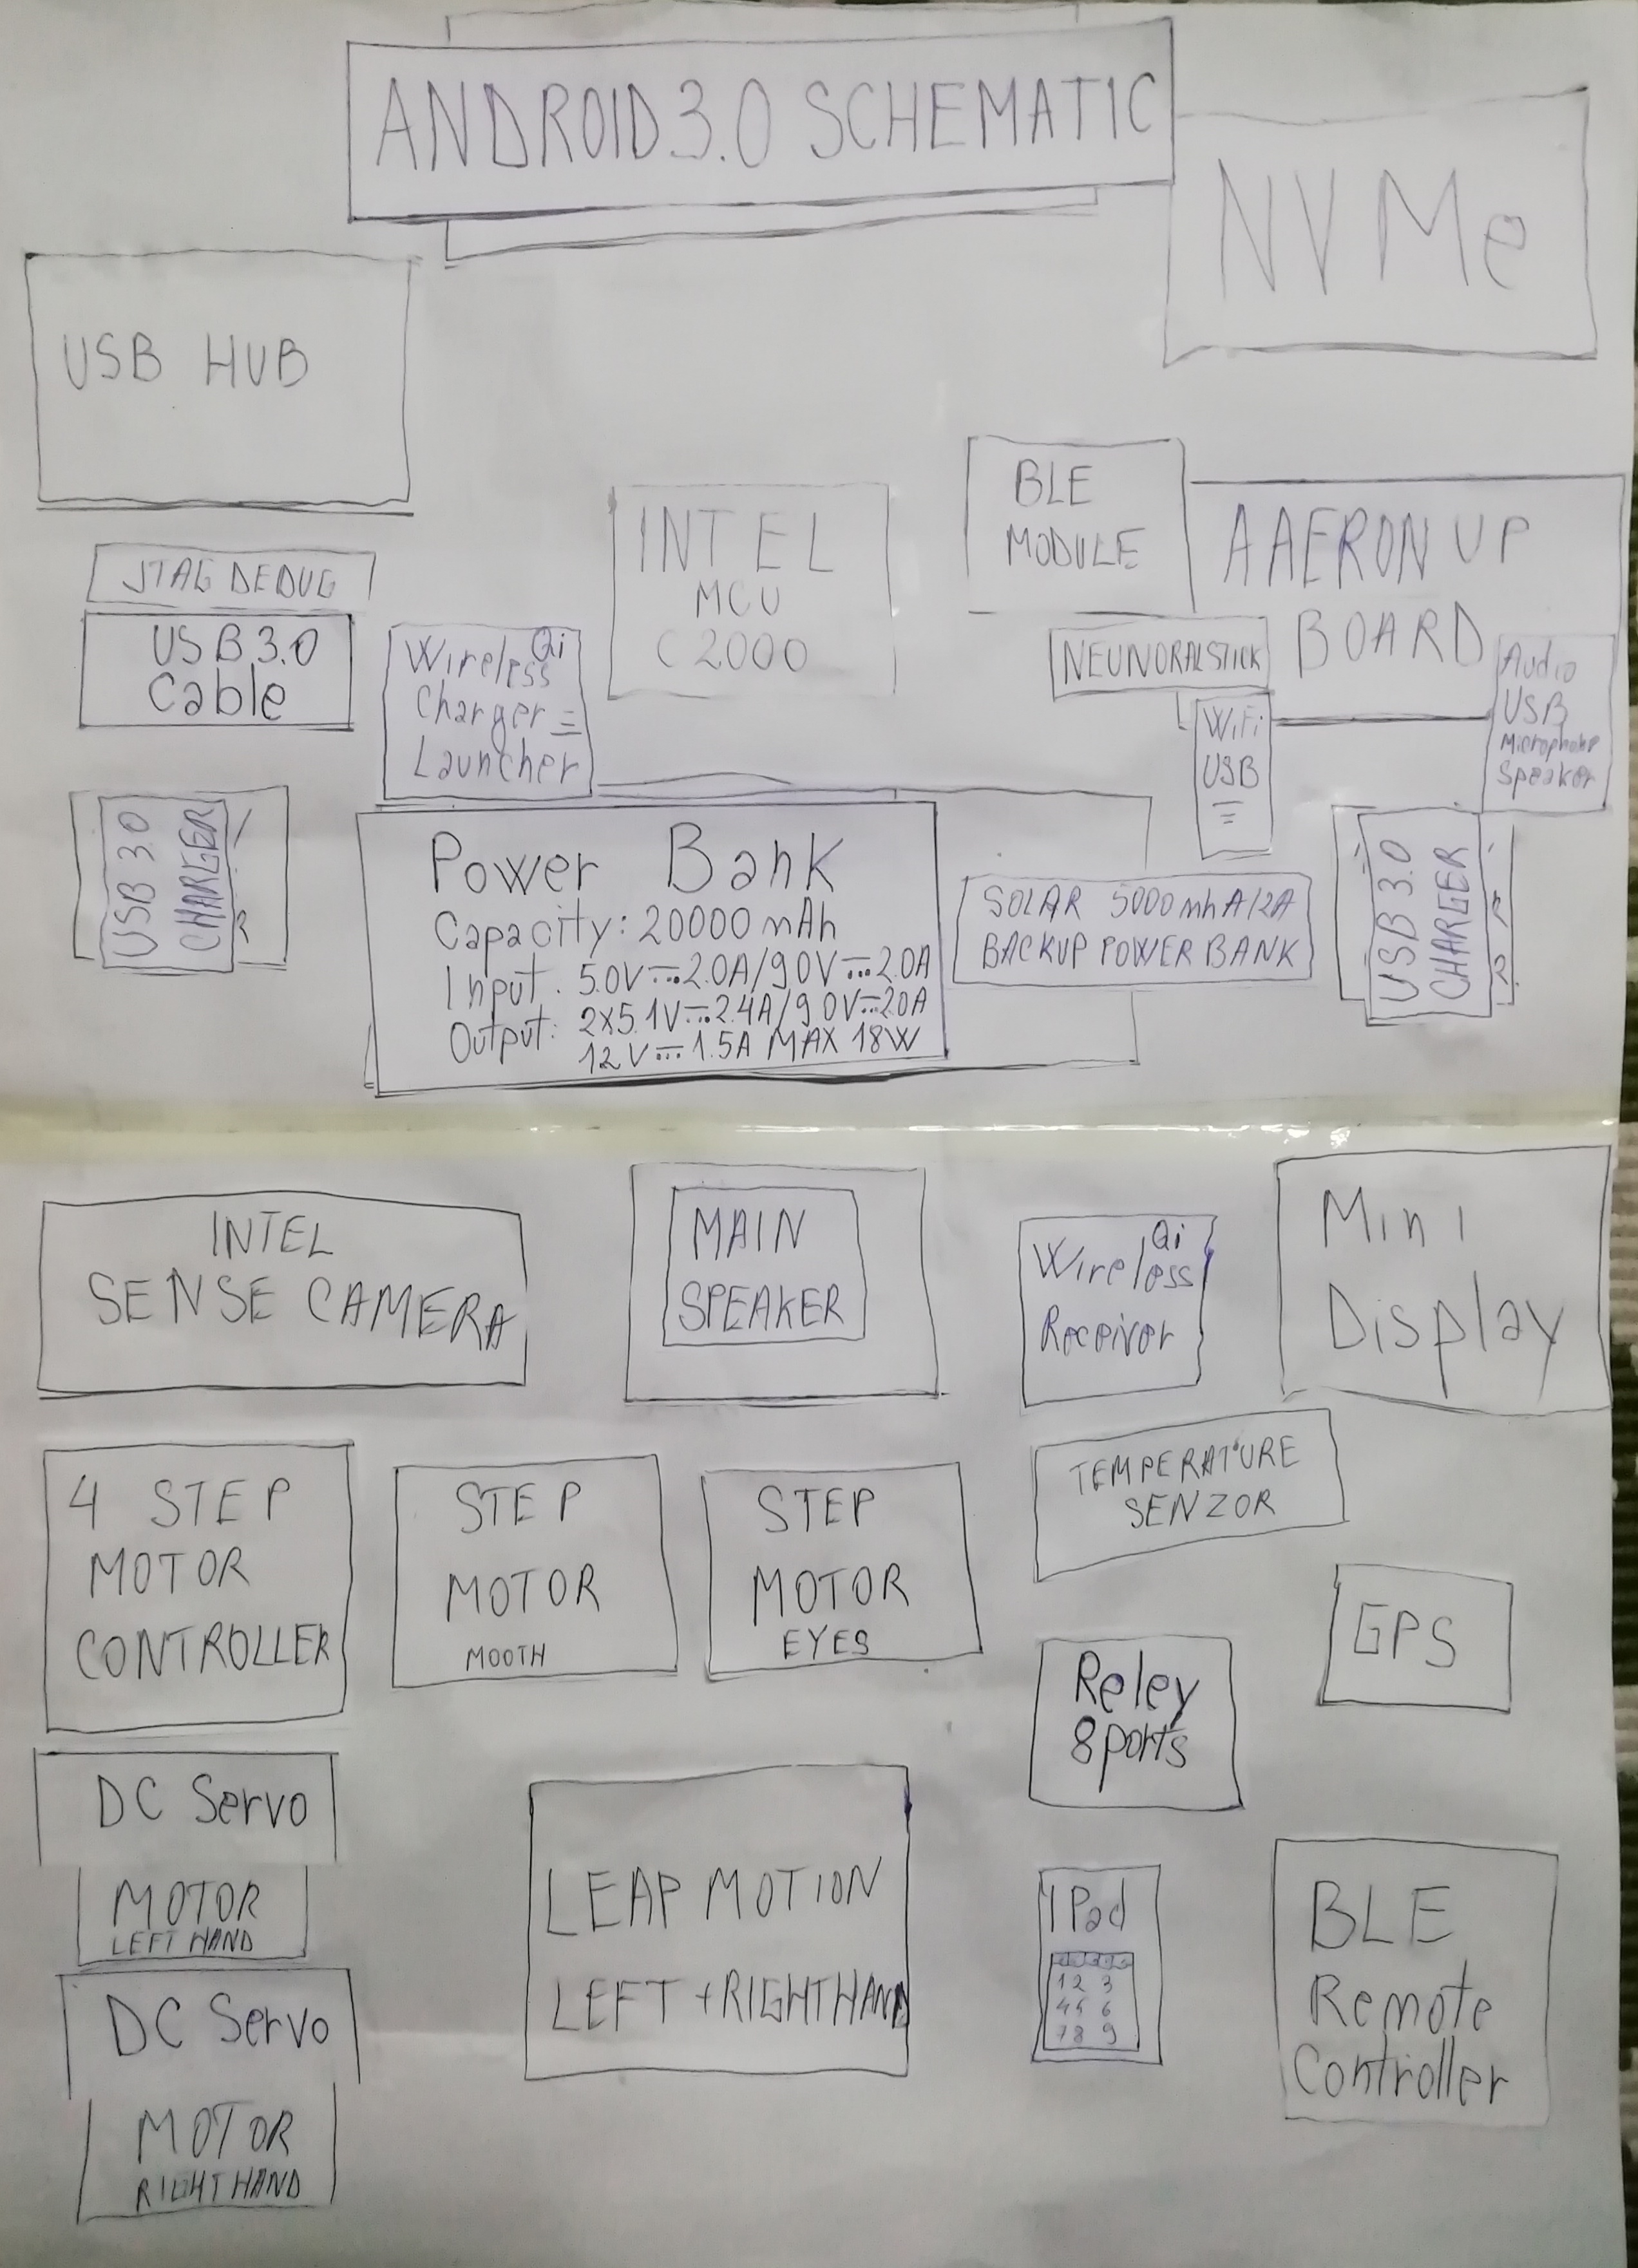 ANDROID 3.0 SCHEMATIC
NVMe
USB HUB
INTEL
MCU
C2000
BLE
MODULE
AAERON UP
BOARD
JTAG DEBUG
USB 3.0
Cable
Wireless Qi
Charger =
Launcher
NEUNORALSTICK
WiFi
USB
=
Audio
USB
Microphone
Speaker
USB 3.0
CHARGER
1
2
Power Bank
Capacity: 20000 mAh
Input: 5.0V⎓2.0A/9.0V⎓2.0A
Output: 2X5.1V⎓2.4A/9.0V⎓2.0A
12V⎓1.5A MAX 18W
SOLAR 5000mhA/2A
BACKUP POWER BANK
USB 3.0
CHARGER
1
2
INTEL
SENSE CAMERA
MAIN
SPEAKER
Qi
Wireless
Receiver
Mini
Display
4 STEP
MOTOR
CONTROLLER
STEP
MOTOR
MOOTH
STEP
MOTOR
EYES
TEMPERATURE
SENZOR
GPS
Reley
8 ports
DC Servo
MOTOR
LEFT HAND
DC Servo
MOTOR
RIGHT HAND
LEAP MOTION
LEFT + RIGHT HAND
Pad
1 2 3
4 5 6
7 8 9
BLE
Remote
Controller